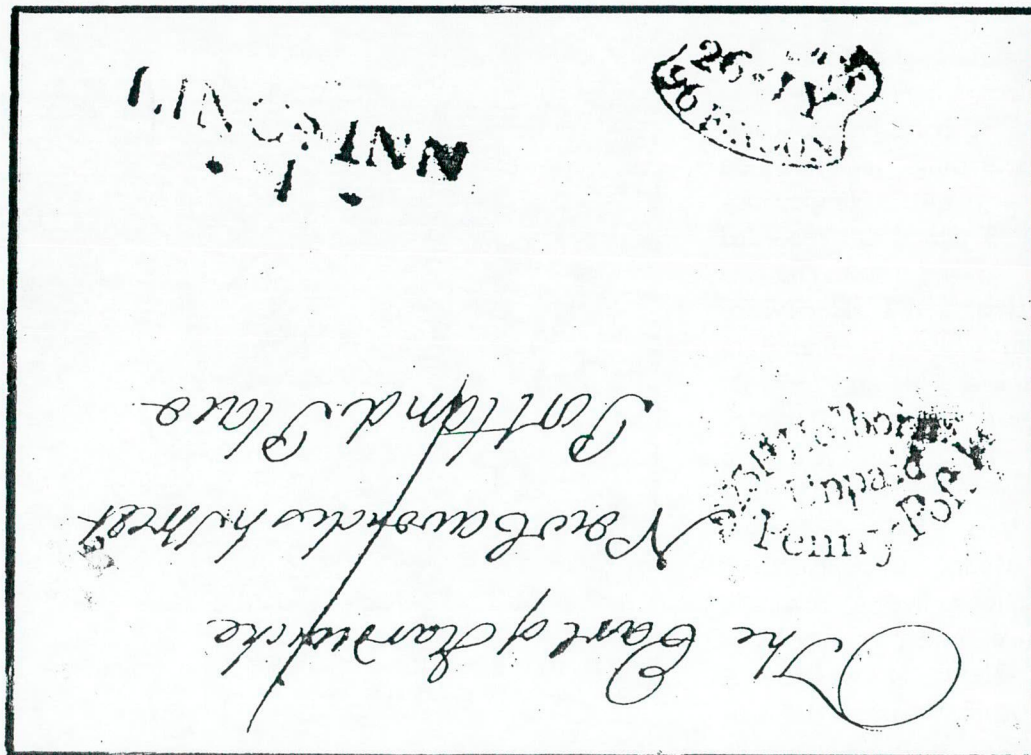 LINC'S INN
1
26·JY
Holborn
Unpaid
Penny Post
The Earl of Hardwicke
New Cavendish Street
Portland Place